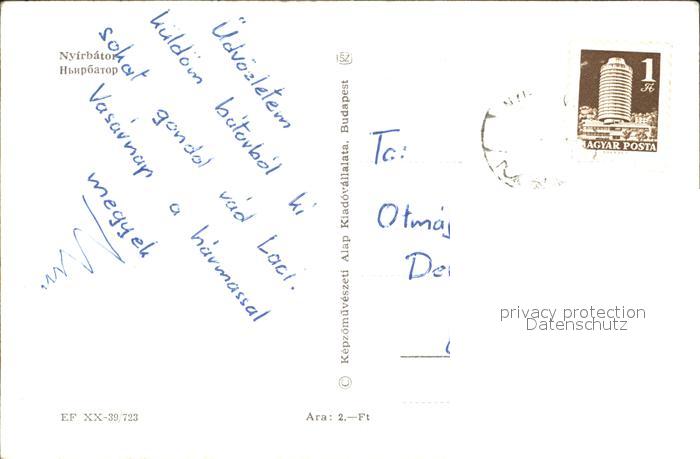 Nyírbátor
Ньирбатор
Üdvözletem
küldöm bátorból ki
sokat gondol rád Laci.
Vasárnap a hármassal
megyek
EF XX-39/723
Ara: 2.—Ft
© Képzőművészeti Alap Kiadóvállalata, Budapest
To:
Otmá
De
1 Ft
MAGYAR POSTA
privacy protection
Datenschutz